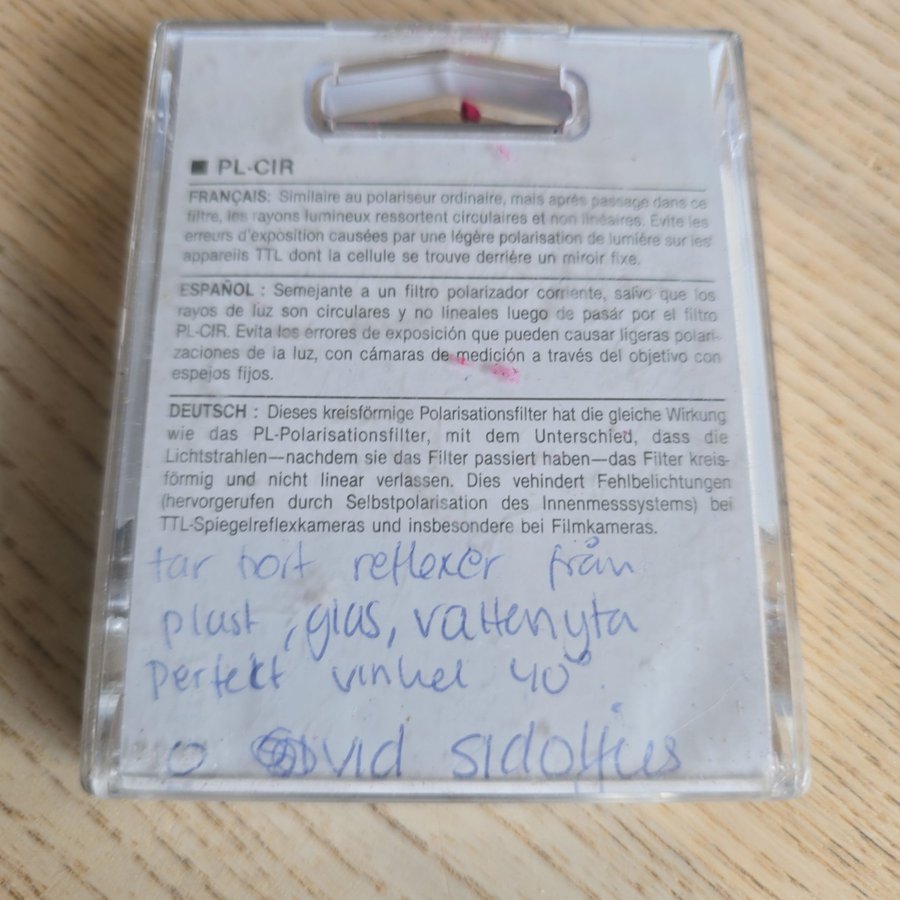 ■ PL-CIR
FRANÇAIS: Similaire au polariseur ordinaire, mais après passage dans ce
filtre, les rayons lumineux ressortent circulaires et non linéaires. Evite les
erreurs d'exposition causées par une légère polarisation de lumière sur les
appareils TTL dont la cellule se trouve derrière un miroir fixe.
ESPAÑOL : Semejante a un filtro polarizador corriente, salvo que los
rayos de luz son circulares y no lineales luego de pasár por el filtro
PL-CIR. Evita los errores de exposición que pueden causar ligeras polari-
zaciones de la luz, con cámaras de medición a través del objetivo con
espejos fijos.
DEUTSCH : Dieses kreisförmige Polarisationsfilter hat die gleiche Wirkung
wie das PL-Polarisationsfilter, mit dem Unterschied, dass die
Lichtstrahlen—nachdem sie das Filter passiert haben—das Filter kreis-
förmig und nicht linear verlassen. Dies vehindert Fehlbelichtungen
(hervorgerufen durch Selbstpolarisation des Innenmesssystems) bei
TTL-Spiegelreflexkameras und insbesondere bei Filmkameras.
tar bort reflexer från
plast, glas, vattenyta
Perfekt vinkel 40°.
o vid sidoljus